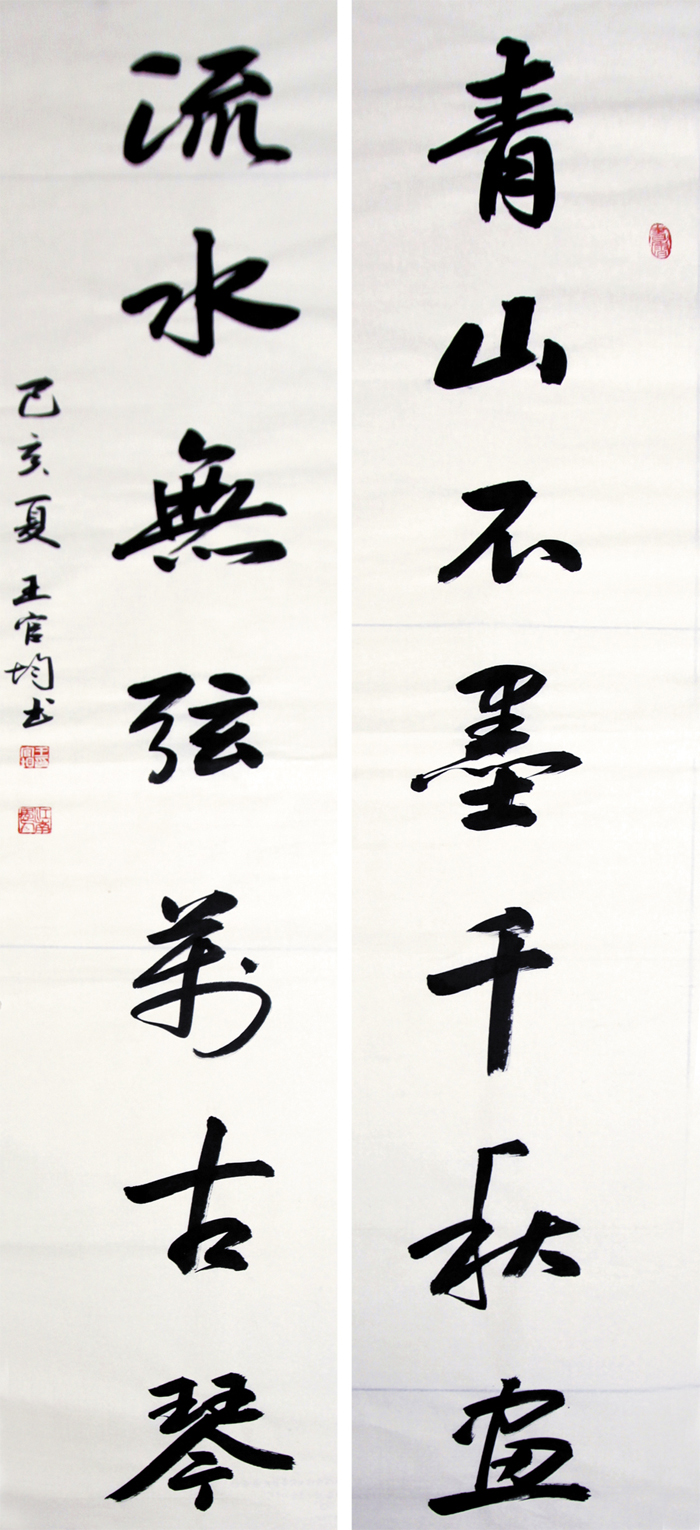 青山不墨千秋画
流水無弦萬古琴
己亥夏 王官均书